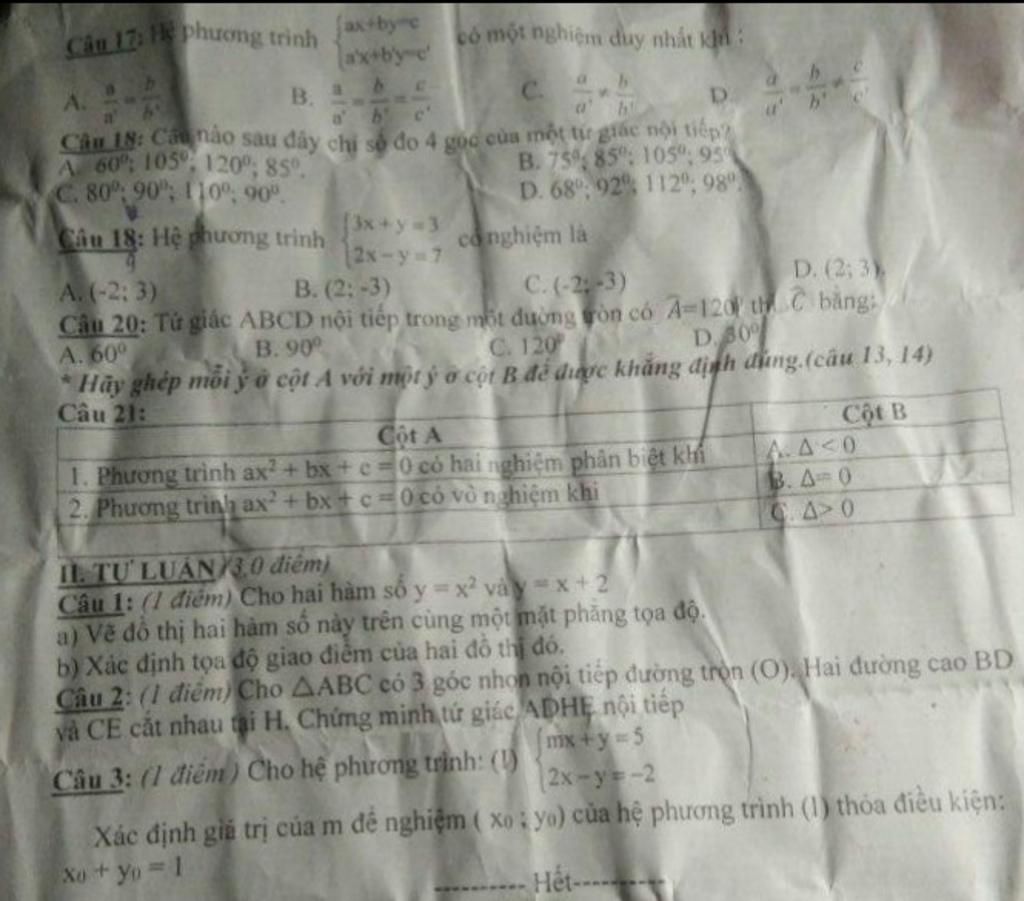 Câu 17: Hệ phương trình {ax+by=c a'x+b'y=c' có một nghiệm duy nhất khi :
A. a/a' = b/b' B. a/a' = b/b' = c/c' C. a/a' ≠ b/b' D. a/a' = b/b' ≠ c/c'
Câu 18: Câu nào sau đây chỉ số đo 4 góc của một tứ giác nội tiếp?
A. 60⁰; 105⁰; 120⁰; 85⁰. B. 75⁰; 85⁰; 105⁰; 95⁰
C. 80⁰; 90⁰; 110⁰; 90⁰. D. 68⁰; 92⁰; 112⁰; 98⁰.
Câu 18: Hệ phương trình {3x + y = 3 2x − y = 7 có nghiệm là
9
A. (-2; 3) B. (2; -3) C. (-2; -3) D. (2; 3).
Câu 20: Tứ giác ABCD nội tiếp trong một đường tròn có Â=120⁰ thì Ĉ bằng:
A. 60⁰ B. 90⁰ C. 120⁰ D. 30⁰
* Hãy ghép mỗi ý ở cột A với một ý ở cột B để được khẳng định đúng.(câu 13, 14)
Câu 21:
Cột A Cột B
1. Phương trình ax² + bx + c = 0 có hai nghiệm phân biệt khi A. Δ < 0
2. Phương trình ax² + bx + c = 0 có vô nghiệm khi B. Δ= 0
C. Δ> 0
II. TỰ LUẬN (3,0 điểm)
Câu 1: (1 điểm) Cho hai hàm số y = x² và y = x + 2
a) Vẽ đồ thị hai hàm số này trên cùng một mặt phẳng tọa độ.
b) Xác định tọa độ giao điểm của hai đồ thị đó.
Câu 2: (1 điểm) Cho △ABC có 3 góc nhọn nội tiếp đường tròn (O). Hai đường cao BD
và CE cắt nhau tại H. Chứng minh tứ giác ADHE nội tiếp
Câu 3: (1 điểm) Cho hệ phương trình: (1) {mx + y = 5 2x − y = −2
Xác định giá trị của m để nghiệm ( x₀ ; y₀) của hệ phương trình (1) thỏa điều kiện:
x₀ + y₀ = 1
---------- Hết----------